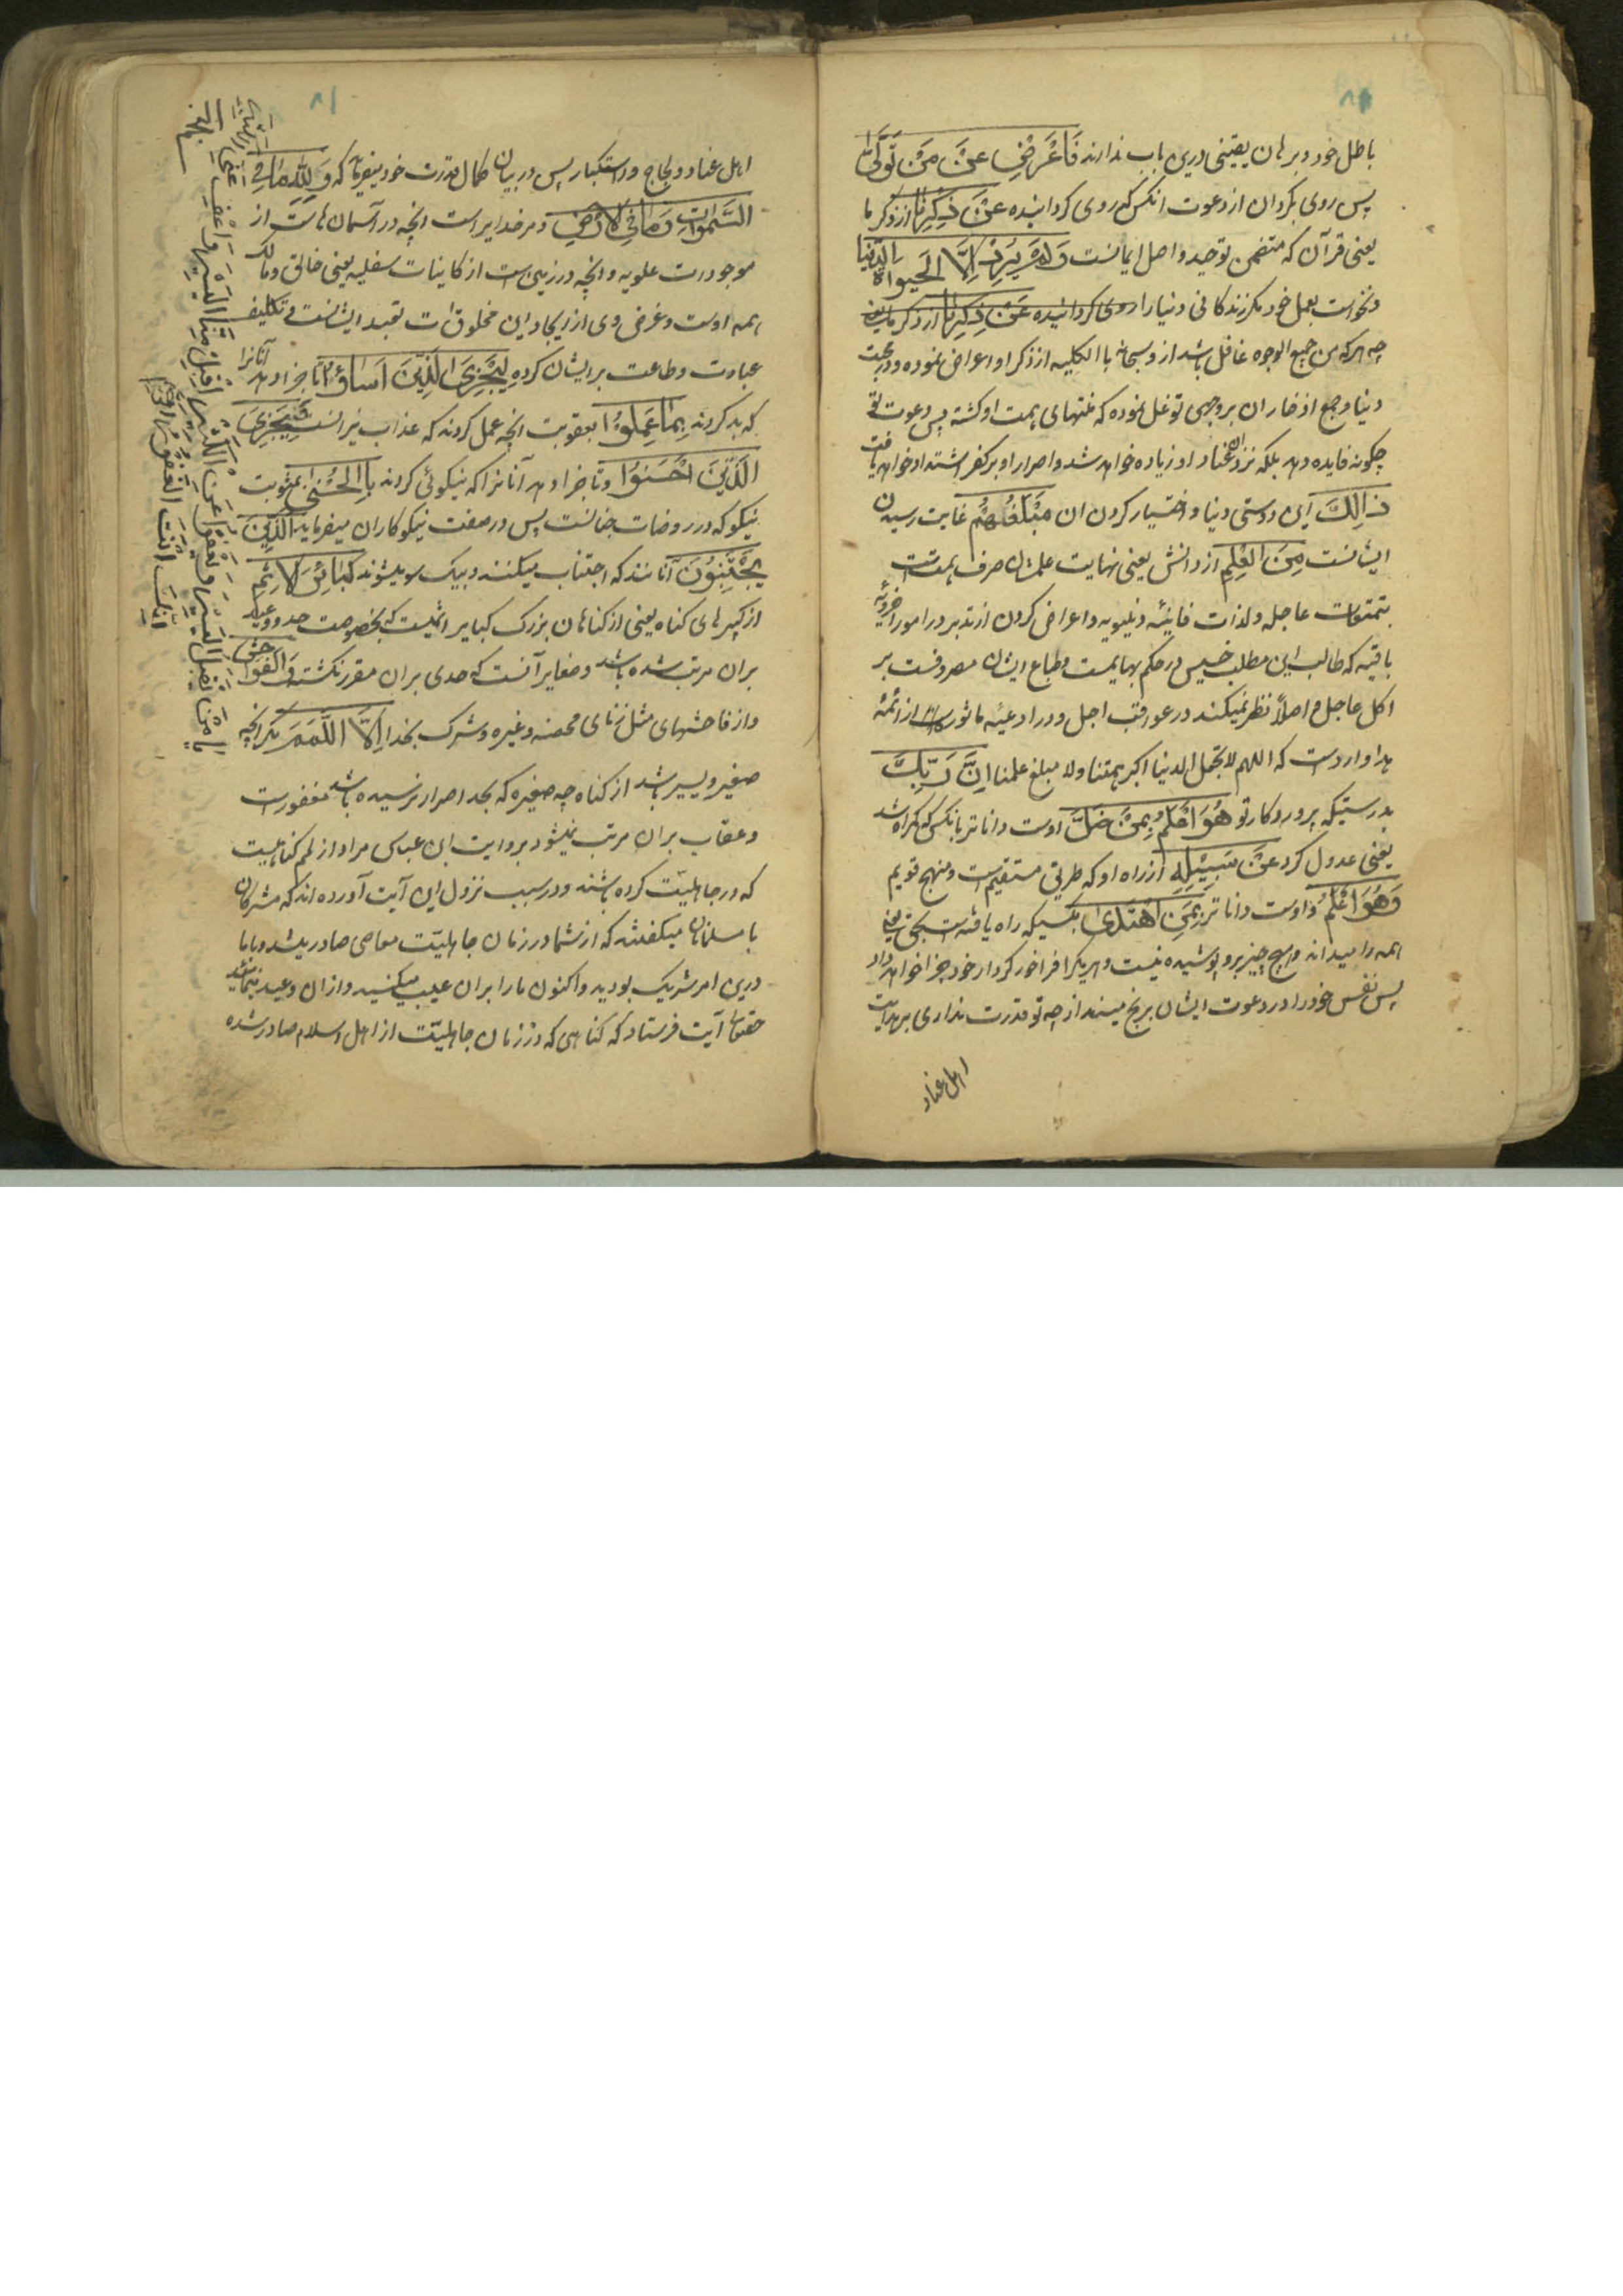 باطل خود و برهان یقینی درین باب ندارند فَاَعْرِضْ عَنْ مَنْ تَوَلّٰی
پس روی بگردان از دعوت انکس که روی کردانیده عَنْ ذِکْرِنَا از ذکر ما
یعنی قرآن که متضمن توحید و اصل ایمانست وَلَمْ یُرِدْ اِلَّا الْحَیٰوةَ الدُّنْیَا
و نخواست بعمل خود مکر زندکانی دنیا را روی کردانیده عَنْ ذِکْرِنَا از ذکر ما یعنی
چه هرکه من جمیع الوجوه غافل باشد از و سبحانه با الکلیه از ذکر او اعراض نموده و در محبت
دنیا و جمع ازخار ان بروجهی توغل نموده که منتهای همت او کشته پس دعوت تو
چکونه فایده دهد بلکه نزد ان عناد او زیاده خواهد شد و اصرار او بر کفر اشتداد خواهد یافت
ذٰالِکَ این دوستی دنیا و اختیار کردن ان مَبْلَغُهُمْ غایت رسیدن
ایشانست مِنَ الْعِلْمِ از دانش یعنی نهایت علمشان صرف همتست
بتمتعات عاجله و لذات فانیه دنیویه و اعراض کردن از تدبر در امور اخرویه
باقیه که طالب این مطلب خسیس در حکم بهایمست و طباع ایشان مصروفست بر
اکل عاجل و اصلاً نظر نمیکنند در عواقب اجل و در ادعیه ماثوره از ائمه
هدا واردست که اللهم لا تجعل الدنیا اکبر همتنا ولا مبلغ علمنا اِنَّ رَبَّکَ
بدرستیکه پروردکار تو هُوَ اَعْلَمُ بِمَنْ ضَلَّ اوست داناتر بانکس که کمراه شد
یعنی عدول کرد عَنْ سَبِیْلِهِ از راه او که طریق مستقیم است و منهج قویم
وَهُوَ اَعْلَمُ و اوست داناتر بِمَنِ اهْتَدٰی بکسیکه راه یافته است بحق یعنی
همه را میداند و هیچ چیز برو پوشیده نیست و هریکرا فراخور کردار خود جزا خواهد داد
پس نفس خود را در دعوت ایشان برنج مینداز چه تو قدرت نداری بر هدایت
اهل عناد
۸۱
اهل عناد و لجاج و استکبار پس در بیان کمال قدرت خود میفرماید که وَلِلّٰهِ مَا فِی
السَّمٰوَاتِ وَمَا فِی الْاَرْضِ و مر خدایراست انچه در آسمان هاست از
موجودات علویه و انچه در زمین است از کاینات سفلیه یعنی خالق و مالک
همه اوست و غرض وی از ایجاد این مخلوقات تعبد ایشانست و تکلیف
عبادت و طاعت بر ایشان کرده لِیَجْزِیَ الَّذِیْنَ اَسَاؤُا تا جزا دهد آنانرا
که بد کردند بِمَا عَمِلُوْا بعقوبت انچه عمل کردند که عذاب نیرانست وَیَجْزِیَ
الَّذِیْنَ اَحْسَنُوْا و تا جزا دهد آنانرا که نیکوئی کردند بِالْحُسْنٰی بمثوبت
نیکو که در روضات جنانست پس در صفت نیکوکاران میفرماید الَّذِیْنَ
یَجْتَنِبُوْنَ آنانند که اجتناب میکنند و بیک سو میشوند کَبَائِرَ الْاِثْمِ
از کبیرهای کناه یعنی از کناهان بزرک کبایر انیست که بخصوصت حد و وعید
بران مرتب شده باشد و صغایر آنست که حدی بران مقرر نکشته وَالْفَوَاحِشَ
و از فاحشهای مثل زنای محصنه و غیره و شرک بخدا اِلَّا اللَّمَمَ مکر انچه
صغیر و یسیر باشد از کناه چه صغیره که بحد اصرار نرسیده باشد مغفورست
و عقاب بران مرتب نمیشود بروایت ابن عباس مراد از لمم کناهیست
که در جاهلیّت کرده باشند و در سبب نزول این آیت آورده اند که مشرکان
با مسلمانان میکفتند که از شما در زمان جاهلیّت معاصی صادر میشد و با ما
درین امر شریک بودید و اکنون ما را بران عیب میکنید و ازان وعید مینمائید
حقتعالی آیت فرستاد که کناهی که در زمان جاهلیّت از اهل اسلام صادر شده
یَا مَنْ یَقْبَلُ الْیَسِیْرَ وَ یَعْفُوْ عَنِ الْکَثِیْرِ اِقْبَلْ مِنَّا الْیَسِیْرَ وَ اعْفُ
اِنَّکَ اَنْتَ الْغَفُوْرُ الرَّحِیْمُ